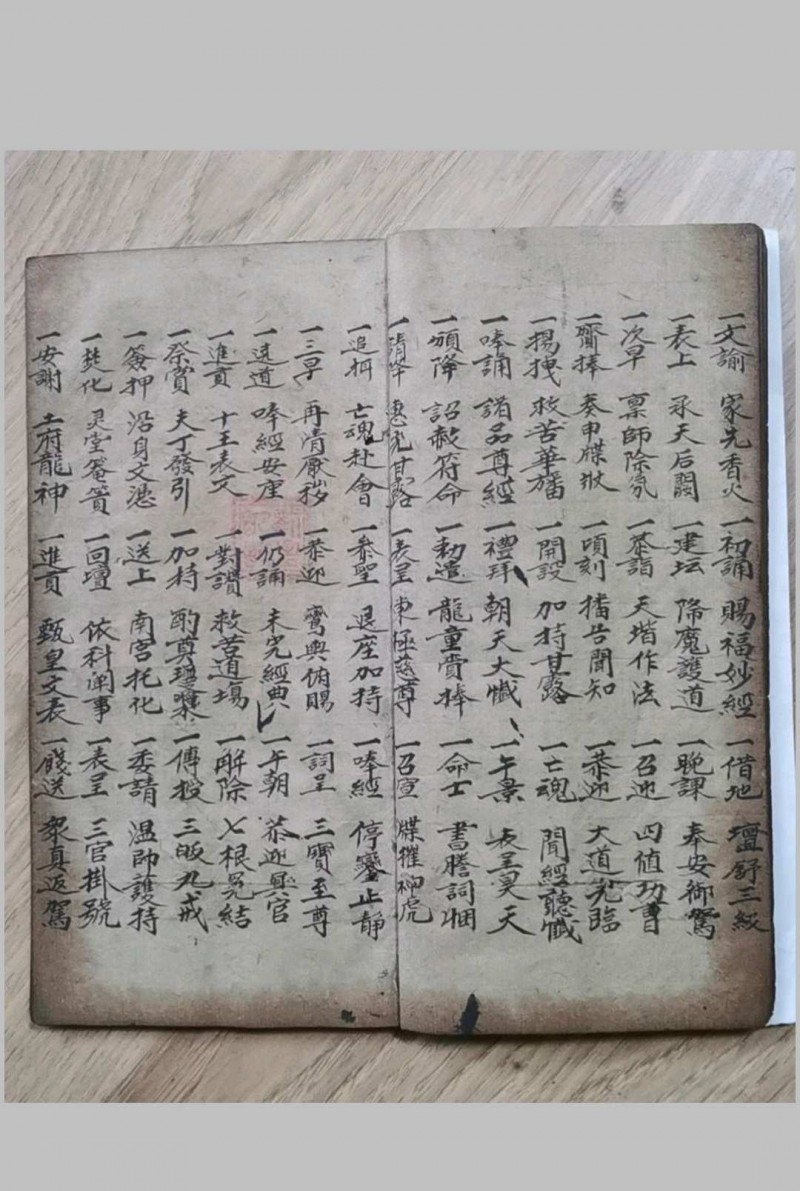 一文諭 家先香火 一初誦 賜福妙經 一借地 壇舒三級
一表上 承天后闕 一建坛 降魔護道 一晚課 奉安御駕
一次早 禀師除氛 一恭詣 天堦作法 一召迎 四值功曹
一齊捧 奏申牒狀 一頃刻 播告聞知 一恭迎 大道光臨
一揚拽 救苦華旛 一開設 加持甘露 一亡魂 聞經聽懺
一唪誦 諸品尊經 一禮拜 朝天大懺 一午景 表呈昊天
一頒降 詔赦符命 一勅遣 龍童賫捧 一命士 書謄詞悃
一請降 惠光甘露 一表呈 東極慈尊 一召宣 牒擢神虎
一追招 亡魂赴會 一叅聖 退座加持 一唪經 停鑾止静
一三早 再清厭穢 一恭迎 鸞輿俯賜 一詞呈 三寶至尊
一遶道 唪經安座 一仍誦 未完經典 一午朝 恭迎眾官
一進貢 十王表文 一對讚 救苦道塲 一解除 七根冤結
一祭賞 夫丁發引 一加持 酌奠 一傳授 三皈九戒
一簽押 沿身文憑 一送上 南宫托化 一委請 温帥護持
一焚化 灵堂菴簣 一回壇 依科闡事 一表呈 三官掛號
一安謝 土府龍神 一進貢 甄皇文表 一餞送 衆真返駕